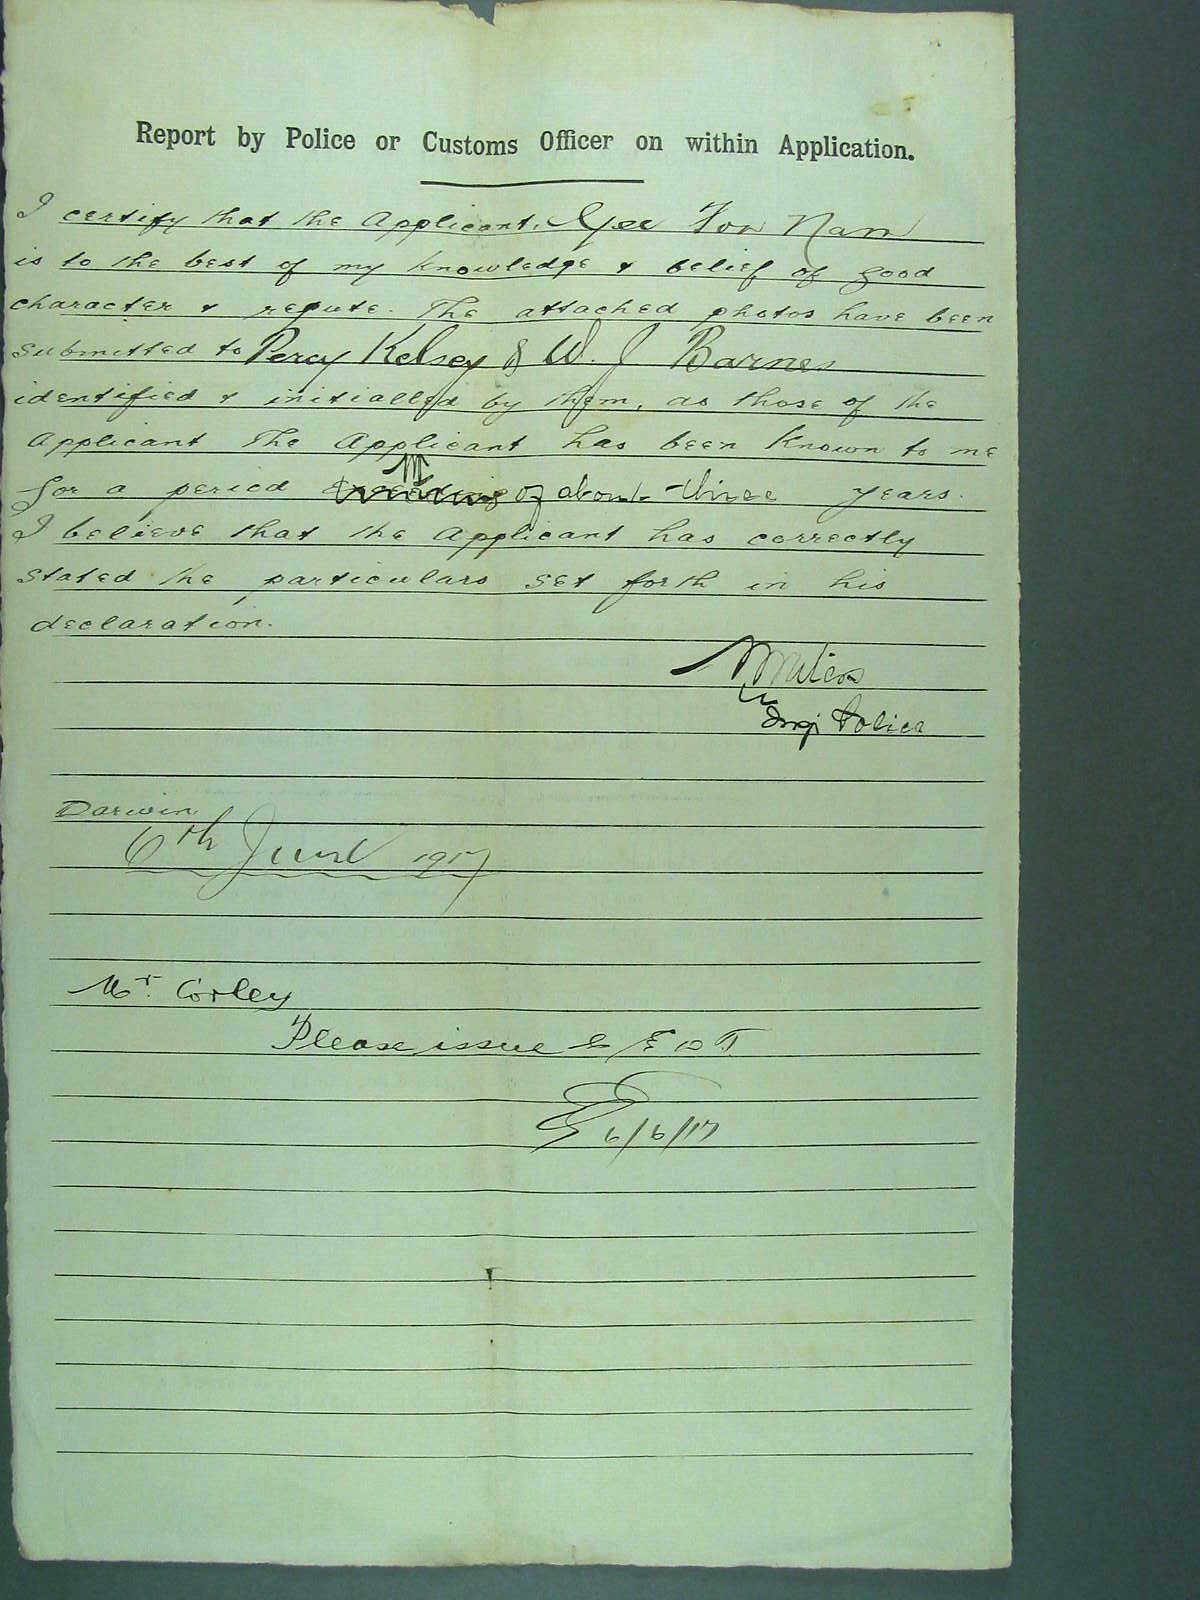 Report by Police or Customs Officer on within Application.
I certify that the Applicant, Yee Fon Nam
is to the best of my knowledge & belief of good
character & repute. The attached photos have been
submitted to Percy Kelsey & W. J. Barnes
identified & initialled by them, as those of the
Applicant The Applicant has been known to me
for a period of about three years.
I believe that the Applicant has correctly
stated the particulars set forth in his
declaration.
Waters
Insp Police
Darwin
6th June 1917
Mr. Corley
Please issue C E D T
6/6/17